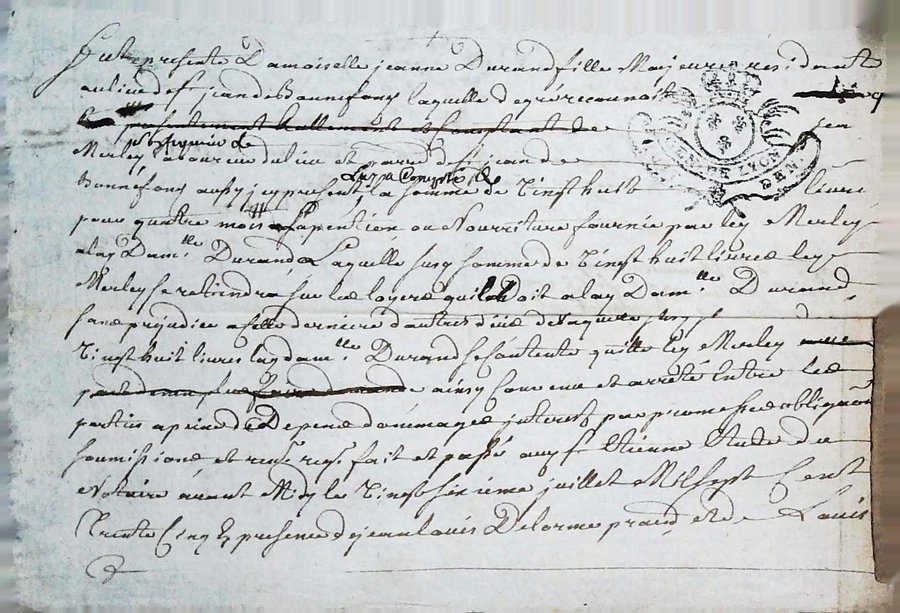 fut presente Damoiselle jeanne Durand fille Majeure residente
au lieu de st jean de Bonnefons laquelle de gré reconnoit
jean
Merley laboureur du lieu et paroisse de st jean de
Bonnefons aussy jcy present, la somme de Vingt huit livres
pour quatre mois de pention ou Nourriture fournie par ledy Merley
alad Damlle Durand, Laquelle susd somme de Vingt huit livres ledy
Merley se retiendra sur les loyers quil doit a lad Damlle Durand,
sans prejudice a cette derniere d'autres deües de laquelle susd
Vingt huit livres lad damlle Durand se contente quitte ledy Merley
ainsy Convenu et arrêté Entre les
parties a peine de Depens dommages jnterest par promesses obligaon
soumissions, et renon reqs fait et passé au st Etienne Etude du
Notaire avant Midy le Vingt sixieme juillet Mil sept Cent
Trente Cinq En presence de jean louis Delorme praud et de Louis
GEN DE LYON
DEN